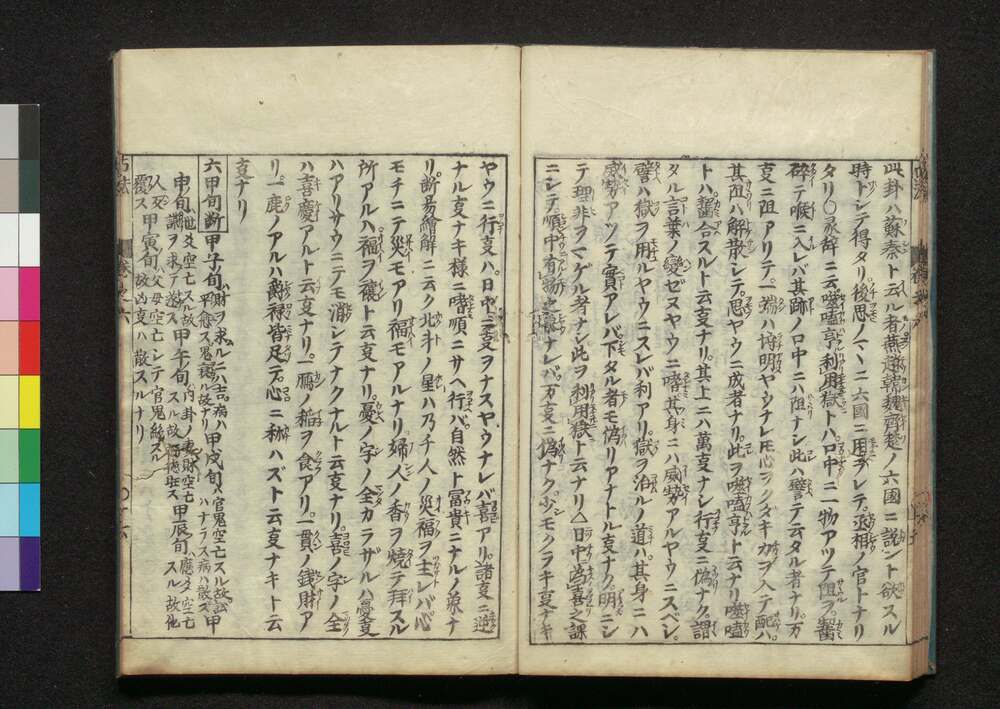 此卦ハ蘇秦ト云ル者燕趙韓魏齊楚ノ六國ニ説ント欲スル
時トシテ得タリ後思ノマヽニ六國ニ用ヲレテ丞相ノ官トナリ
タリ〇彖辞ニ云噬嗑亨利用獄トハ口中ニ一物アツテ阻ヲ齧
碎テ喉ニ入レバ其跡ノ口中ニハ阻ナシ此ハ譬テ云タル者ナリ万
叓ニ阻アリテ一端ハ埒明ヤシナレ𪜈心ヲクダキカヲ入テ配ハ
其阻ハ解散シテ忍ヤウニ成者ナリ此ヲ噬嗑亨ト云ナリ噬嗑
トハ齧合スルト云叓ナリ其上ニハ萬叓ナシ行叓ニ偽ナク謂
タル言葉ノ變ゼヌヤウニ嗜其身ニハ威勢アルヤウニスベシ
譬ハ獄ヲ用ルヤウニスレバ利アリ獄ヲ治ルノ道ハ其身ニハ
威勢アツテ實アレバ下タル者モ偽リアナトル叓ナク明ニシ
テ理非ヲマゲル者ナシ此ヲ利用獄ト云ナリ△日中為𠮷之課
ニシテ頤中有物之象ナレバ万叓ニ偽ナク少モクラキ叓ナキ
ヤウニ行叓ハ日中ニ叓ヲナスヤウナレバ喜アリ諸叓ニ逆
ナル叓ナキ様ニ嗜順ニサヘ行ハ自然ト冨貴ニナルノ象ナ
リ断易繪解ニ云ク北斗ノ星ハ乃チ人ノ災福ヲ主レバ心
モチニテ災モアリ福モアルナリ婦人ノ香ヲ燒テ拜スル
所アルハ福ヲ禳ト云叓ナリ憂ノ字ノ全カラザルハ憂叓
ハアリサウニテモ消シテナクナルト云叓ナリ喜ノ字ノ全
ハ喜慶アルト云叓ナリ一鴈ノ稲ヲ食アリ一貫ノ銭財ア
リ一鹿ノアルハ爵禄皆足テ心ニ称ハズト云叓ナキト云
叓ナリ
六甲旬断 甲子ノ旬ハ財ヲ求ルニハ吉病ハ平愈ス鬼弱ル故ナリ 甲戌旬ハ官鬼空亡スル故訟ハナラス病ハ散ズ 甲
申旬世爻空亡スル故謀ヲ求テ遂ス 甲午旬内卦ノ妻財空亡スル故 甲辰旬應タ空亡スル故他
人死ス 甲寅旬父母空亡シテ官鬼絶ス
覆ス 故凶叓ハ散スルナリ